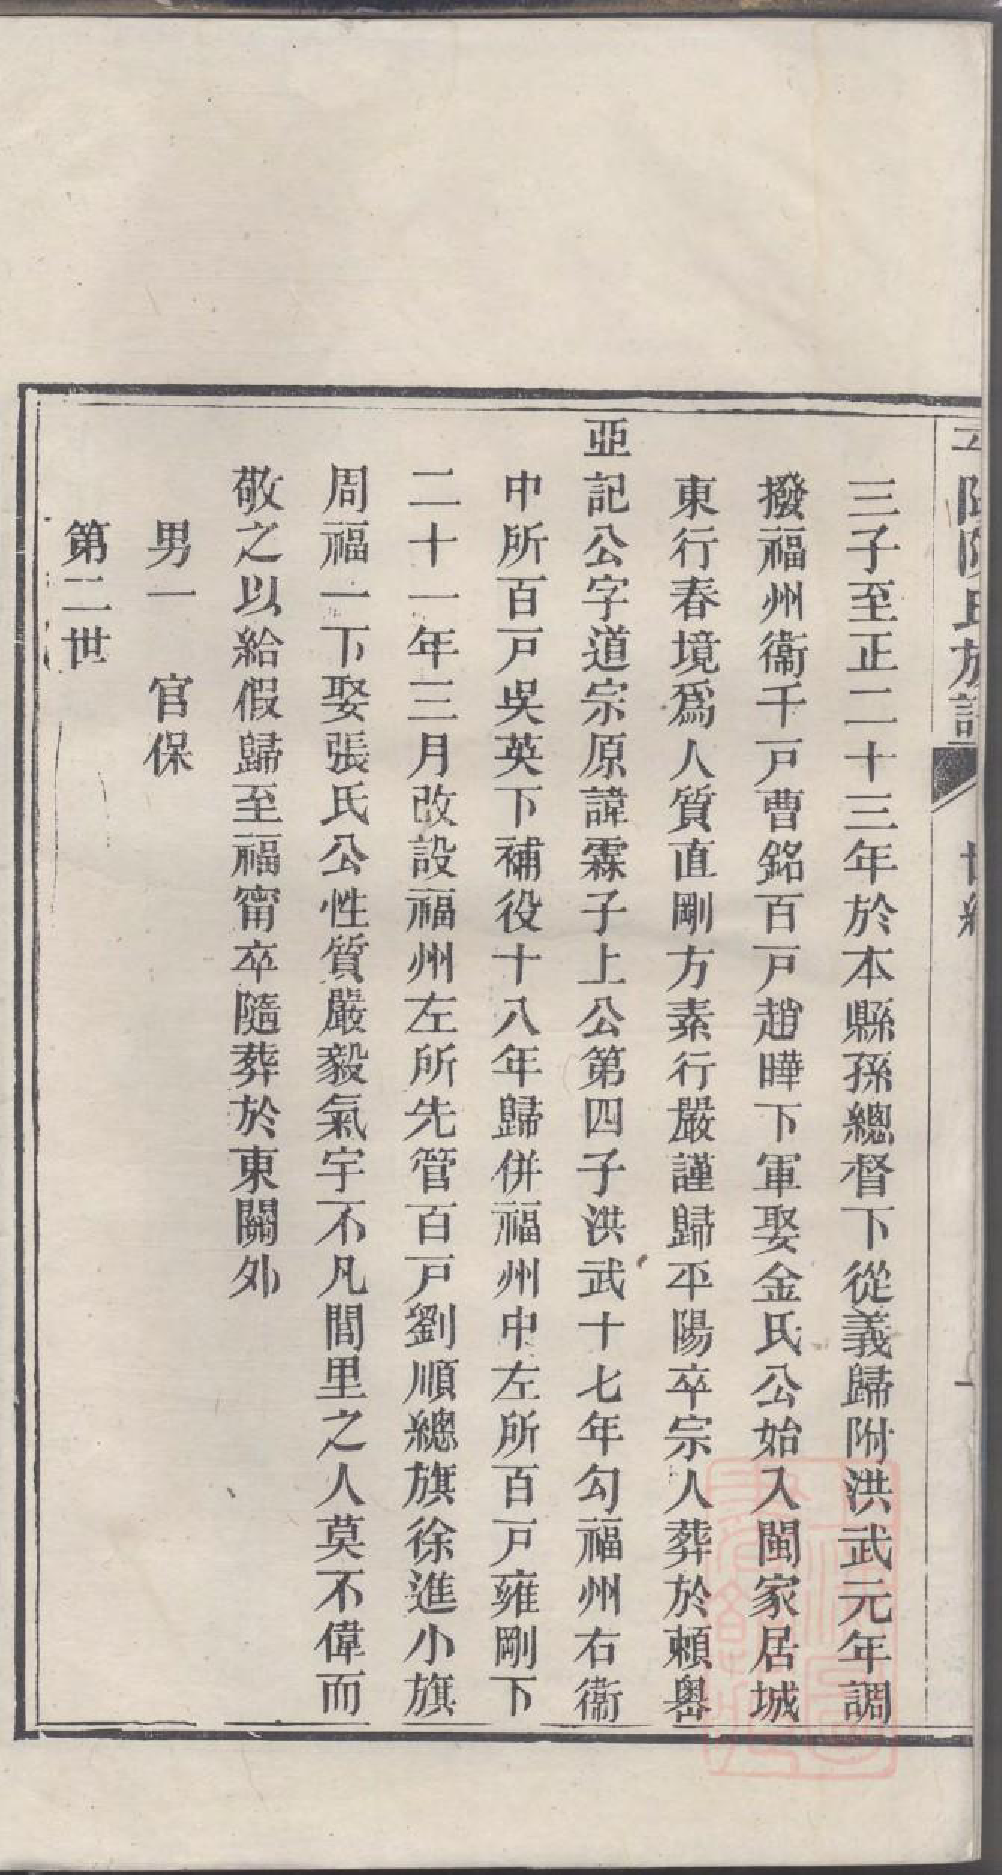 陳氏族譜
三子至正二十三年於本縣孫總督下從義歸附洪武元年調
撥福州衞千戸曹銘百戸趙曄下軍娶金氏公始入閩家居城
東行春境爲人質直剛方素行嚴謹歸平陽卒宗人葬於賴嶴
亞記公字道宗原諱霖子上公第四子洪武十七年勾福州右衞
中所百戸吳英下補役十八年歸併福州中左所百戸雍剛下
二十一年三月改設福州左所先管百戸劉順總旗徐進小旗
周福一下娶張氏公性質嚴毅氣宇不凡閭里之人莫不偉而
敬之以給假歸至福甯卒隨葬於東關外
男一　官保
第二世